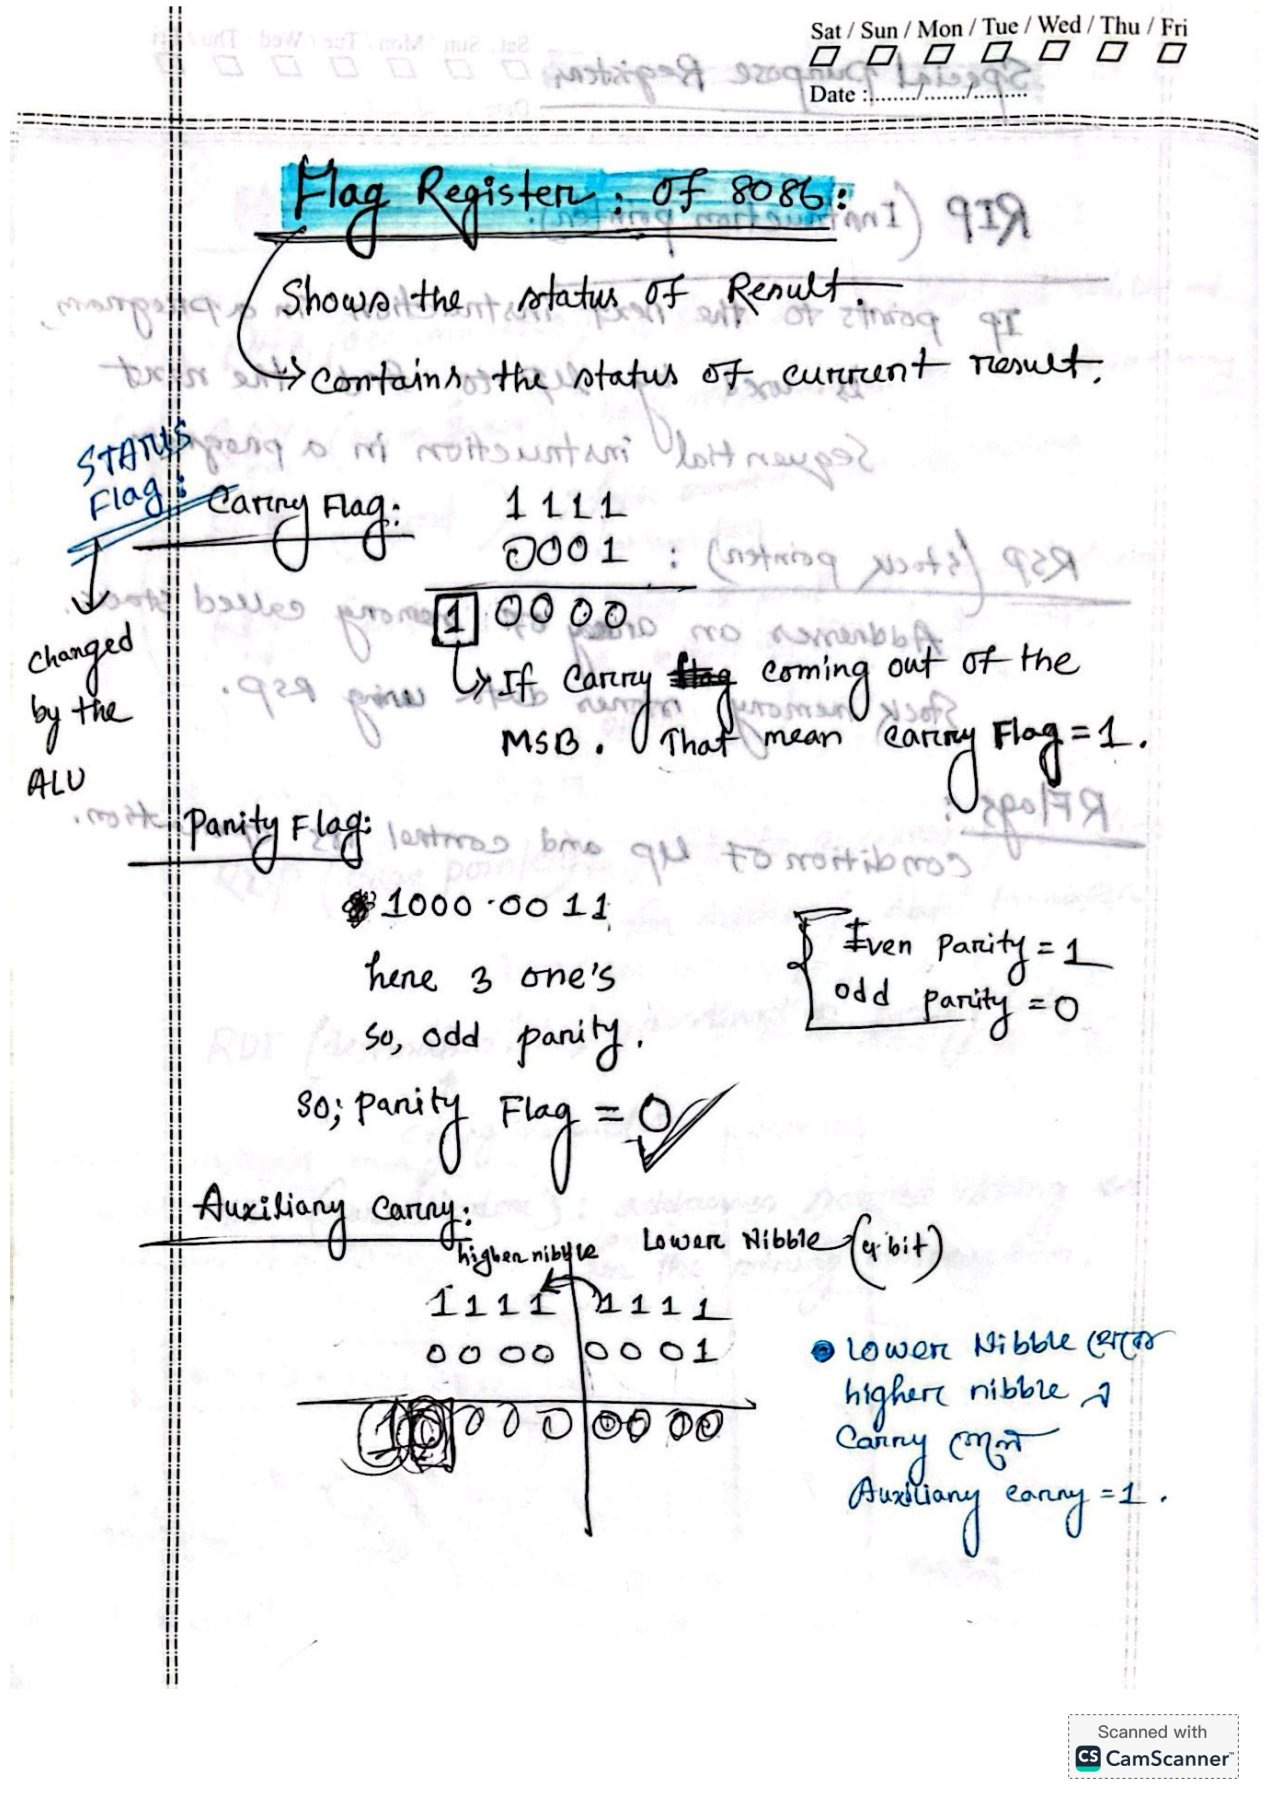 Sat / Sun / Mon / Tue / Wed / Thu / Fri
Date :......../......./.........
Flag Register: of 8086:
Shows the status of Result.
contains the status of current result.
STATUS
Flag:
changed
by the
ALU
Carry Flag:
1 1 1 1
0001
1 0000
If Carry coming out of the
MSB. That mean carry Flag = 1.
Parity Flag:
1000 0011
here 3 one's
so, odd parity.
so; parity Flag = 0
Even parity = 1
odd parity = 0
Auxiliary Carry:
higher nibble Lower Nibble (4 bit)
1111 1111
0000 0001
1 0 000 0000
Lower Nibble থেকে
higher nibble এ
Carry গেলে
Auxiliary carry = 1.
Scanned with
CS CamScanner